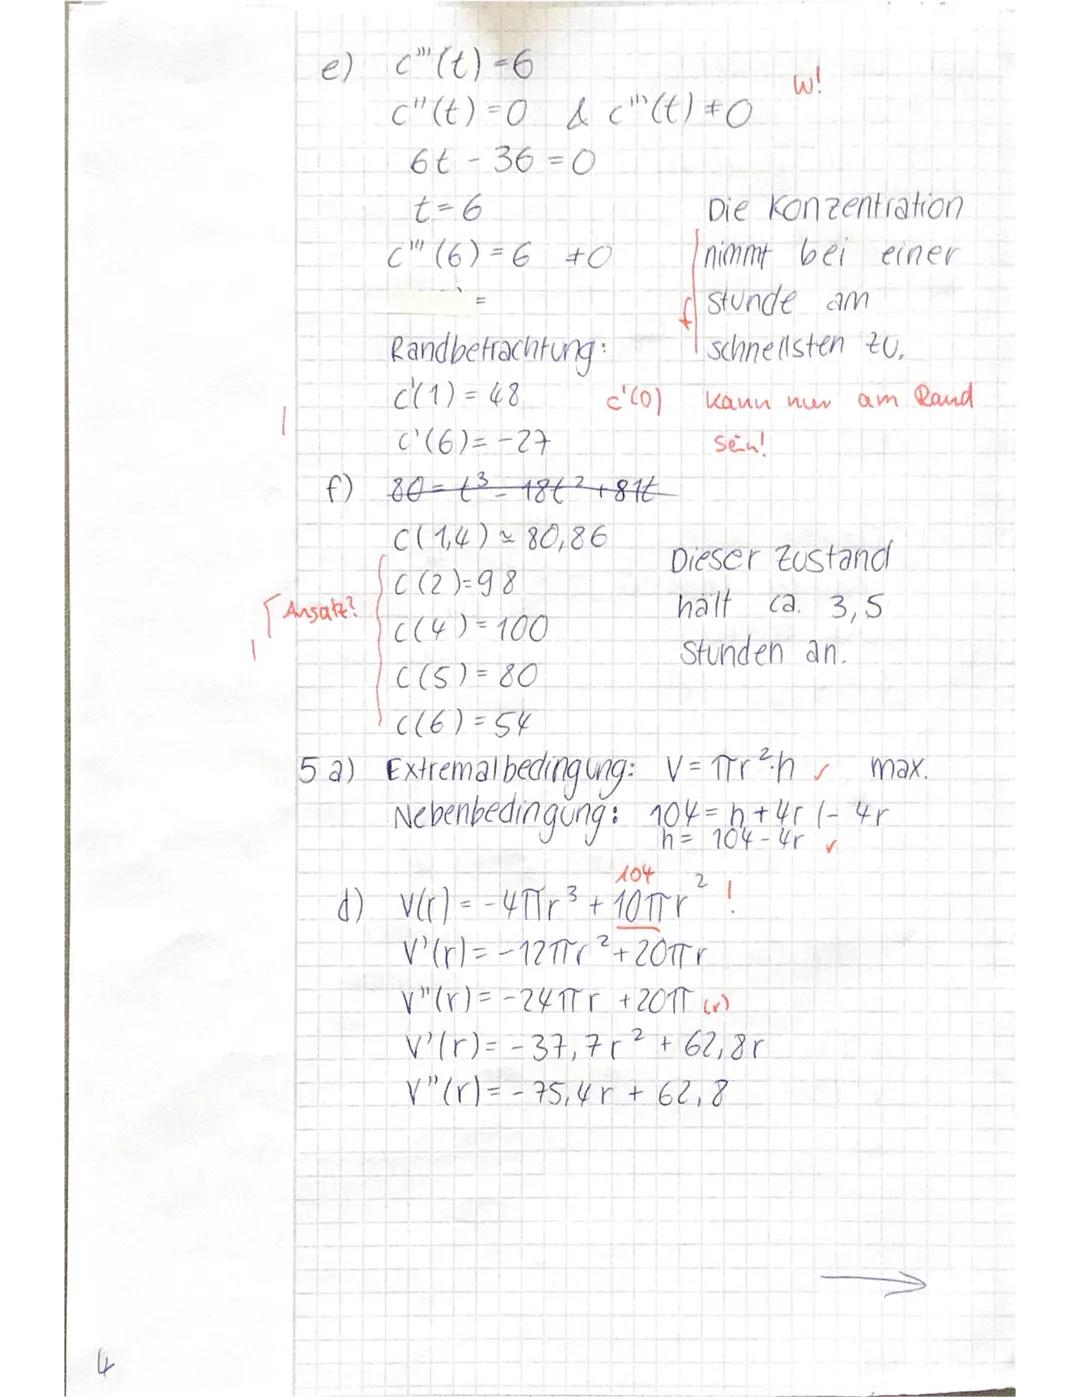 e) c'''(t)=6
w!
c''(t)=0 & c'''(t)≠0
6t - 36 = 0
t=6
c'''(6)=6 ≠0
=
Die Konzentration
nimmt bei einer
Stunde am
schnellsten zu.
f
Randbetrachtung:
c'(1)=48
c'(0) kann nur am Rand
sein!
c'(6)=-27
f) 80=t³-18t²+81t
c(1,4)≈80,86
c(2)=98
c(4)=100
c(5)=80
c(6)=54
Ansatz?
Dieser Zustand
hält ca. 3,5
Stunden an.
5 a) Extremalbedingung: V=πr²·h ✓ max.
Nebenbedingung: 104=h+4r |-4r
h= 104-4r ✓
104
d) V(r)=-4πr³+10πr² !
V'(r)=-12πr²+20πr
V''(r)=-24πr+20π (✓)
V'(r)=-37,7r²+62,8r
V''(r)=-75,4r+62,8
4